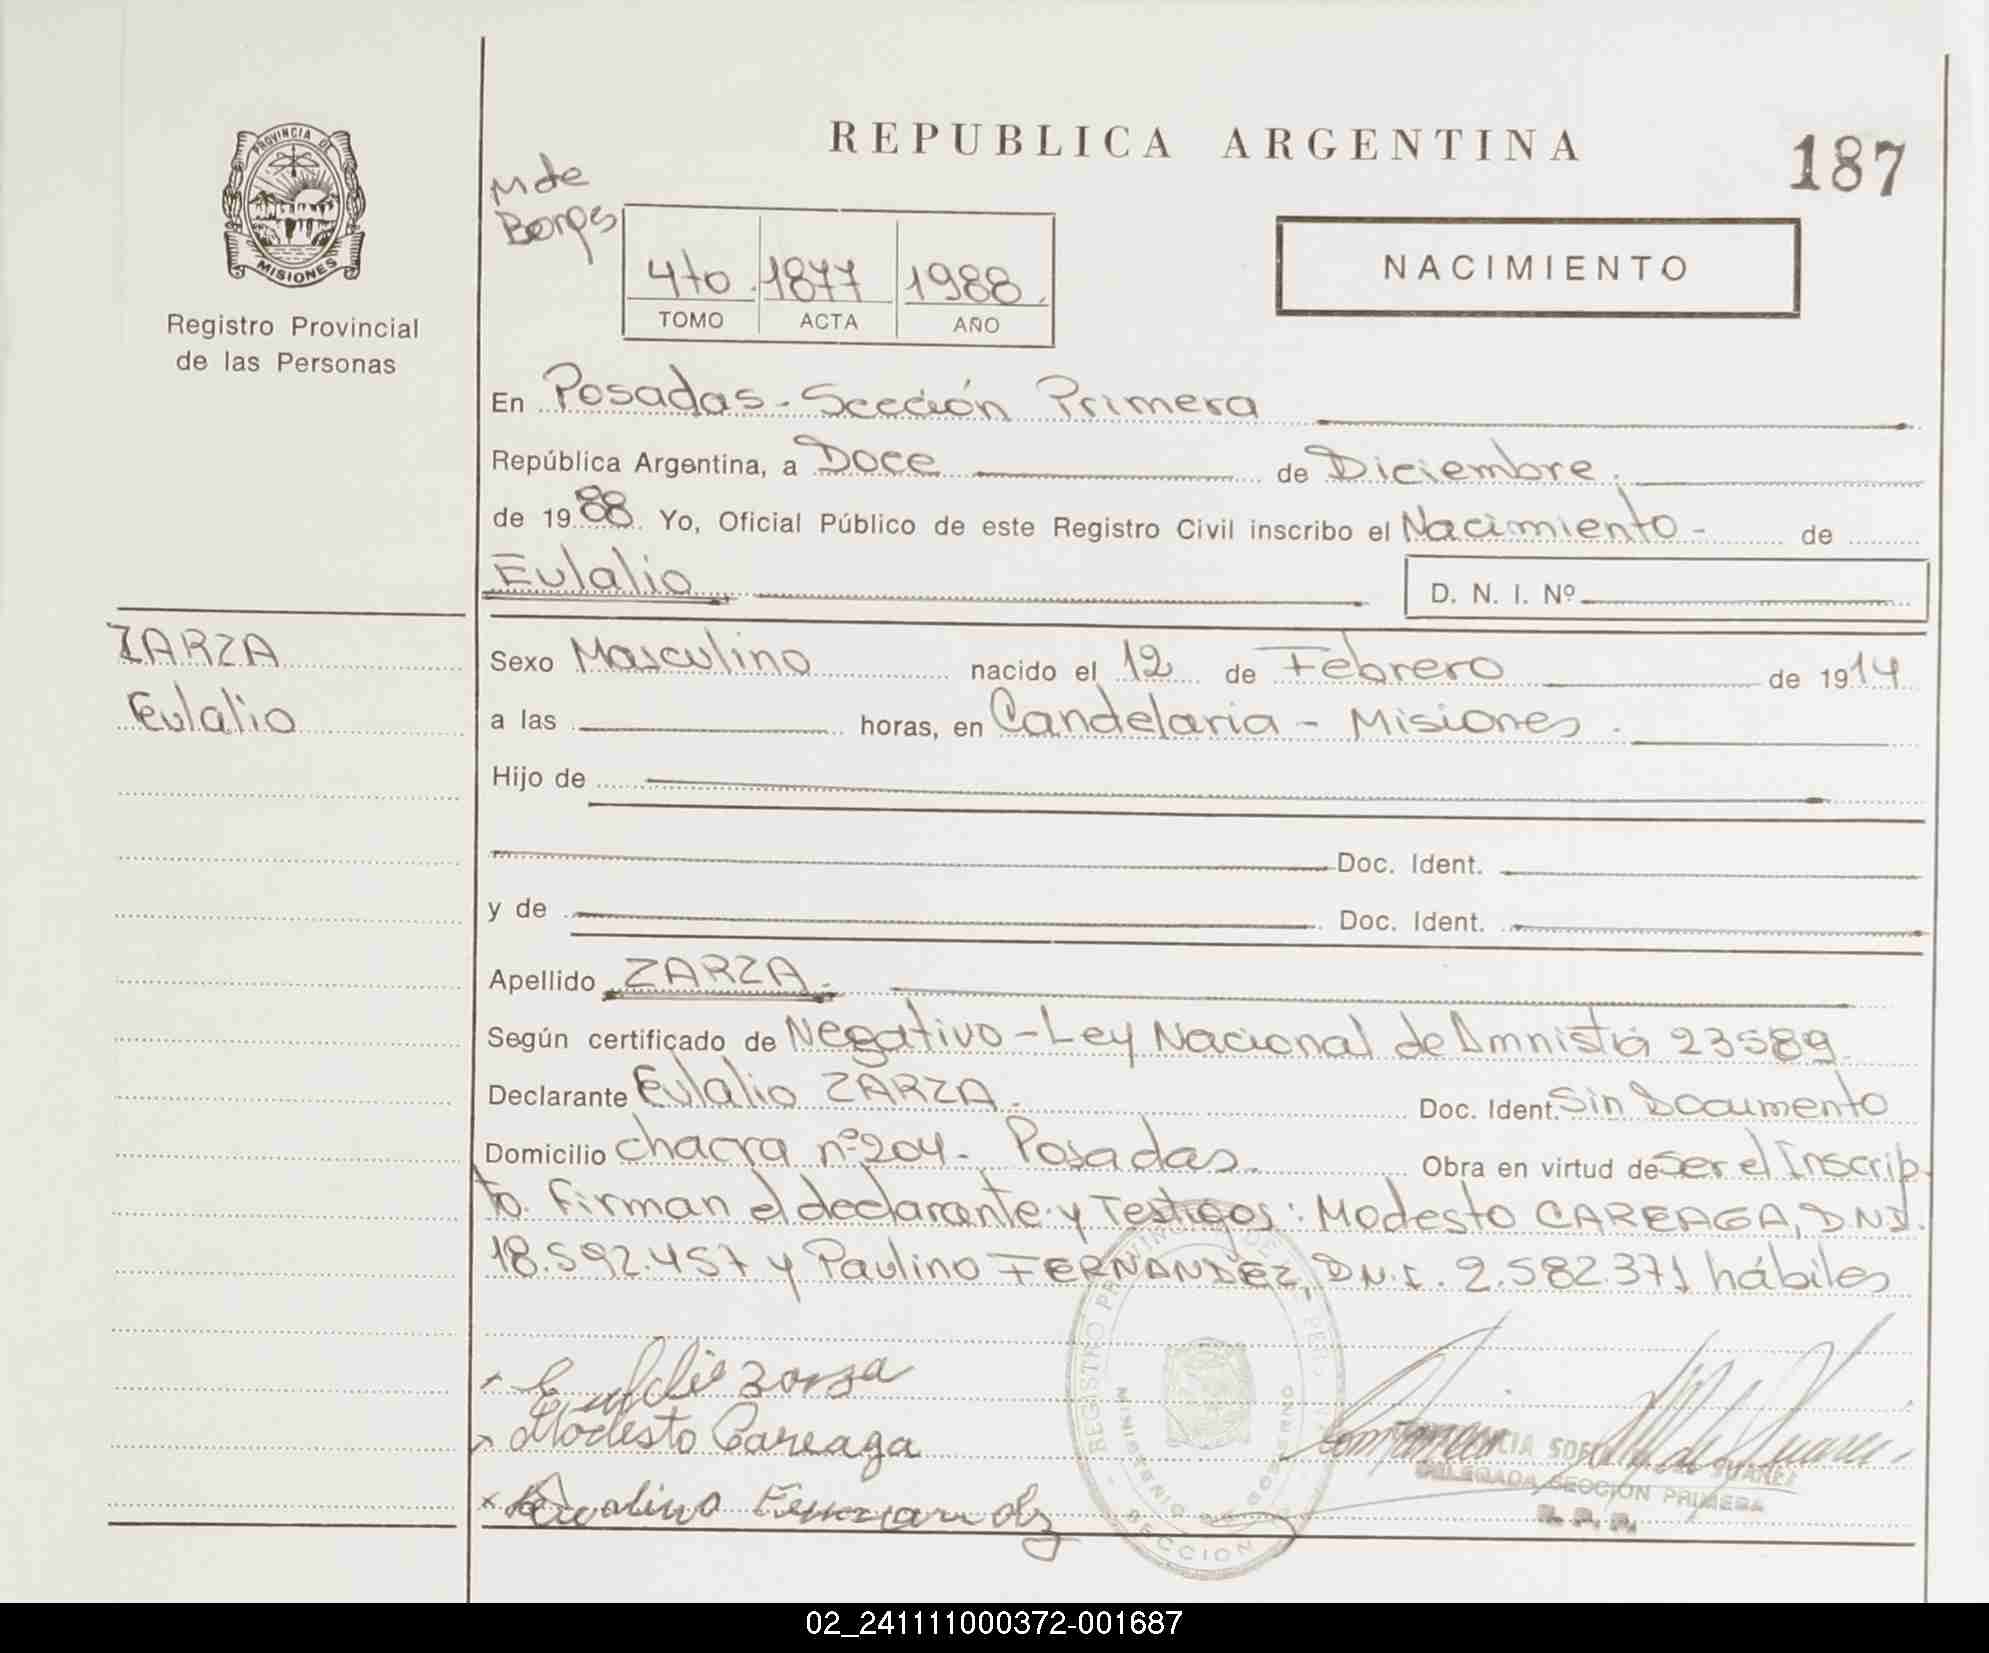 REPUBLICA ARGENTINA
187
PROVINCIA DE
MISIONES
Registro Provincial
de las Personas
M de
4to. 1877 1988.
TOMO ACTA AÑO
NACIMIENTO
En Posadas - Sección Primera
República Argentina, a Doce de Diciembre.
de 1988. Yo, Oficial Público de este Registro Civil inscribo el Nacimiento - de
Eulalio
D. N. I. Nº
ZARZA
Eulalio
Sexo Masculino nacido el 12 de Febrero de 1914
a las horas, en Candelaria - Misiones.
Hijo de
Doc. Ident.
y de Doc. Ident.
Apellido ZARZA.
Según certificado de Negativo - Ley Nacional de Amnistia 23589.
Declarante Eulalio ZARZA. Doc. Ident. Sin Documento
Domicilio chacra nº 204. Posadas. Obra en virtud de ser el Inscrip
to. Firman el declarante y Testigos: Modesto CAREAGA, D.N.I.
18.592.457 y Paulino FERNANDEZ, D.N.I. 2.582.371 hábiles
Modesto Careaga
REGISTRO PROVINCIAL DE
MINISTERIO DE GOBIERNO
SECCION
DELEGADA SECCION PRIMERA
R. P. P.
02_241111000372-001687